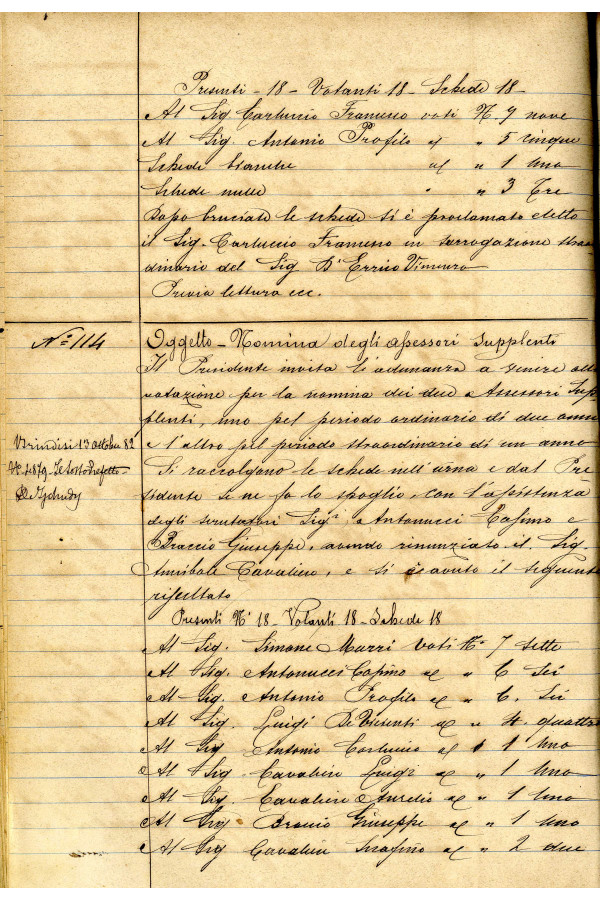 Presenti - 18 - Votanti 18 - Schede 18
Al Sig Carluccio Francesco voti N. 9 nove
Al Sig. Antonio Profilo id " 5 cinque
Schede bianche id " 1 uno
Schede nulle " " 3 Tre
Dopo bruciate le schede si è proclamato eletto
il Sig. Carluccio Francesco in surrogazione strao
dinario del Sig D'Errico Vincenzo
Previa lettura ecc.
N.° 114
Oggetto - Nomina degli assessori supplenti
Il Presidente invita l'adunanza a venire alla
votazione per la nomina dei due Assessori Sup
plenti, uno pel periodo ordinario di due anni
e l'altro pel periodo straordinario di un anno
Brindisi 13 ottobre 82
Il Sottoprefetto
Si raccolgono le schede nell'urna e dal Pre
sidente se ne fa lo spoglio, con l'assistenza
degli scrutatori Sig.i Antonucci Cosimo e
Braccio Giuseppe, avendo rinunziato il Sig.
Annibale Cavaliere, e si è avuto il seguente
risultato
Presenti N.° 18 - Votanti 18 - Schede 18
Al Sig. Simone Murri voti N.° 7 sette
Al Sig. Antonucci Cosimo id " 6 sei
Al Sig. Antonio Profilo id " 6. sei
Al Sig. Luigi De Vicenti id " 4. quattro
Al Sig Antonio Carluccio id " 1 uno
Al Sig Cavaliere Luigi id " 1 uno
Al Sig. Cavaliere Aurelio id " 1 uno
Al Sig Braccio Giuseppe id " 1 uno
Al Sig Cavaliere Serafino id " 2 due